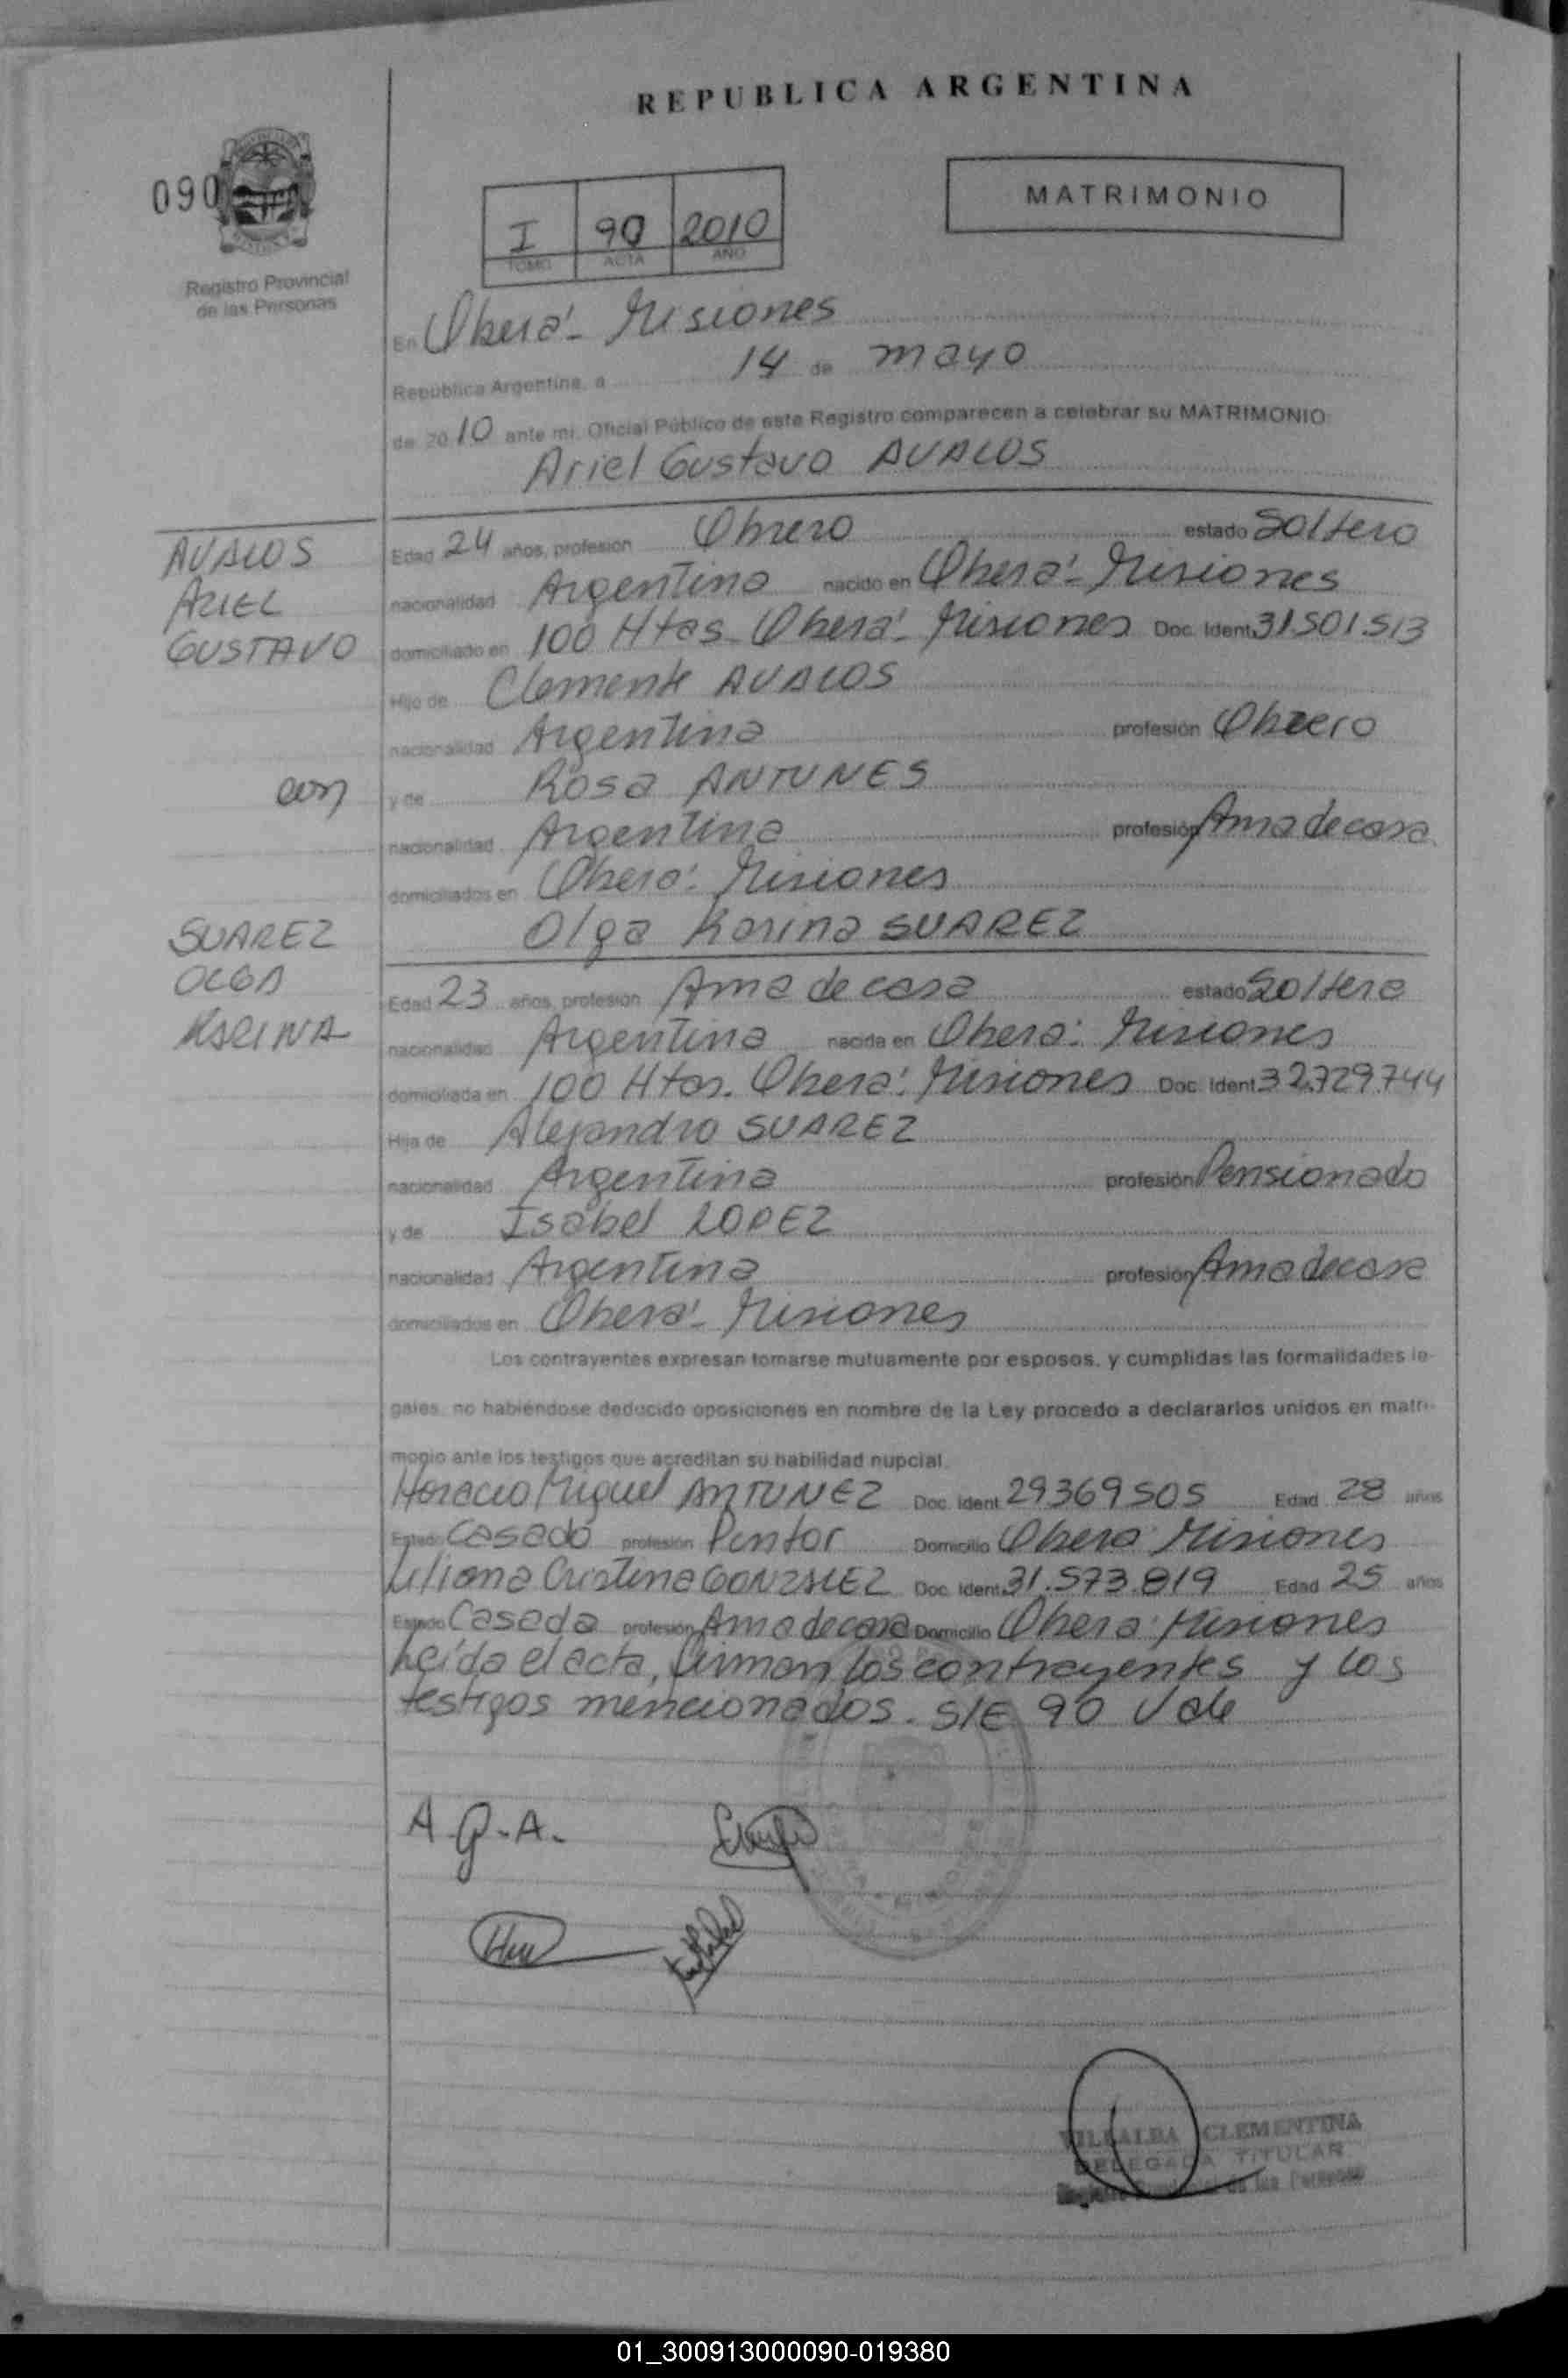 REPUBLICA ARGENTINA
090
MATRIMONIO
I 90 2010
TOMO ACTA AÑO
Registro Provincial
de las Personas
En Oberá - Misiones
República Argentina, a 14 de mayo
de 2010 ante mi, Oficial Público de este Registro comparecen a celebrar su MATRIMONIO:
Ariel Gustavo AVALOS
AVALOS
ARIEL
GUSTAVO
Edad 24 años, profesión Obrero estado Soltero
nacionalidad Argentina nacido en Oberá - Misiones
domiciliado en 100 Htas - Oberá - Misiones Doc. Ident. 31501513
Hijo de Clemente AVALOS
nacionalidad Argentina profesión Obrero
con
y de Rosa ANTUNES
nacionalidad Argentina profesión Ama de casa
domiciliados en Oberá - Misiones
Olga Karina SUAREZ
SUAREZ
OLGA
KARINA
Edad 23 años, profesión Ama de casa estado Soltera
nacionalidad Argentina nacida en Oberá - Misiones
domiciliada en 100 Htas. Oberá - Misiones Doc. Ident. 32.729.744
Hija de Alejandro SUAREZ
nacionalidad Argentina profesión Pensionado
y de Isabel LOPEZ
nacionalidad Argentina profesión Ama de casa
domiciliados en Oberá - Misiones
Los contrayentes expresan tomarse mutuamente por esposos, y cumplidas las formalidades le-
gales, no habiéndose deducido oposiciones en nombre de la Ley procedo a declararlos unidos en matri-
monio ante los testigos que acreditan su habilidad nupcial.
Horacio Miguel ANTUNEZ Doc. Ident. 29369505 Edad 28 años
Estado Casado profesión Pintor Domicilio Oberá - Misiones
Liliana Cristina GONZALEZ Doc. Ident. 31.573.819 Edad 25 años
Estado Casada profesión Ama de casa Domicilio Oberá - Misiones
Leída el acta, firman los contrayentes y los
testigos mencionados. S/E 90 Vale
A.G.A.
VILLALBA CLEMENTINA
DELEGADA TITULAR
Registro Provincial de las Personas
01_300913000090-019380